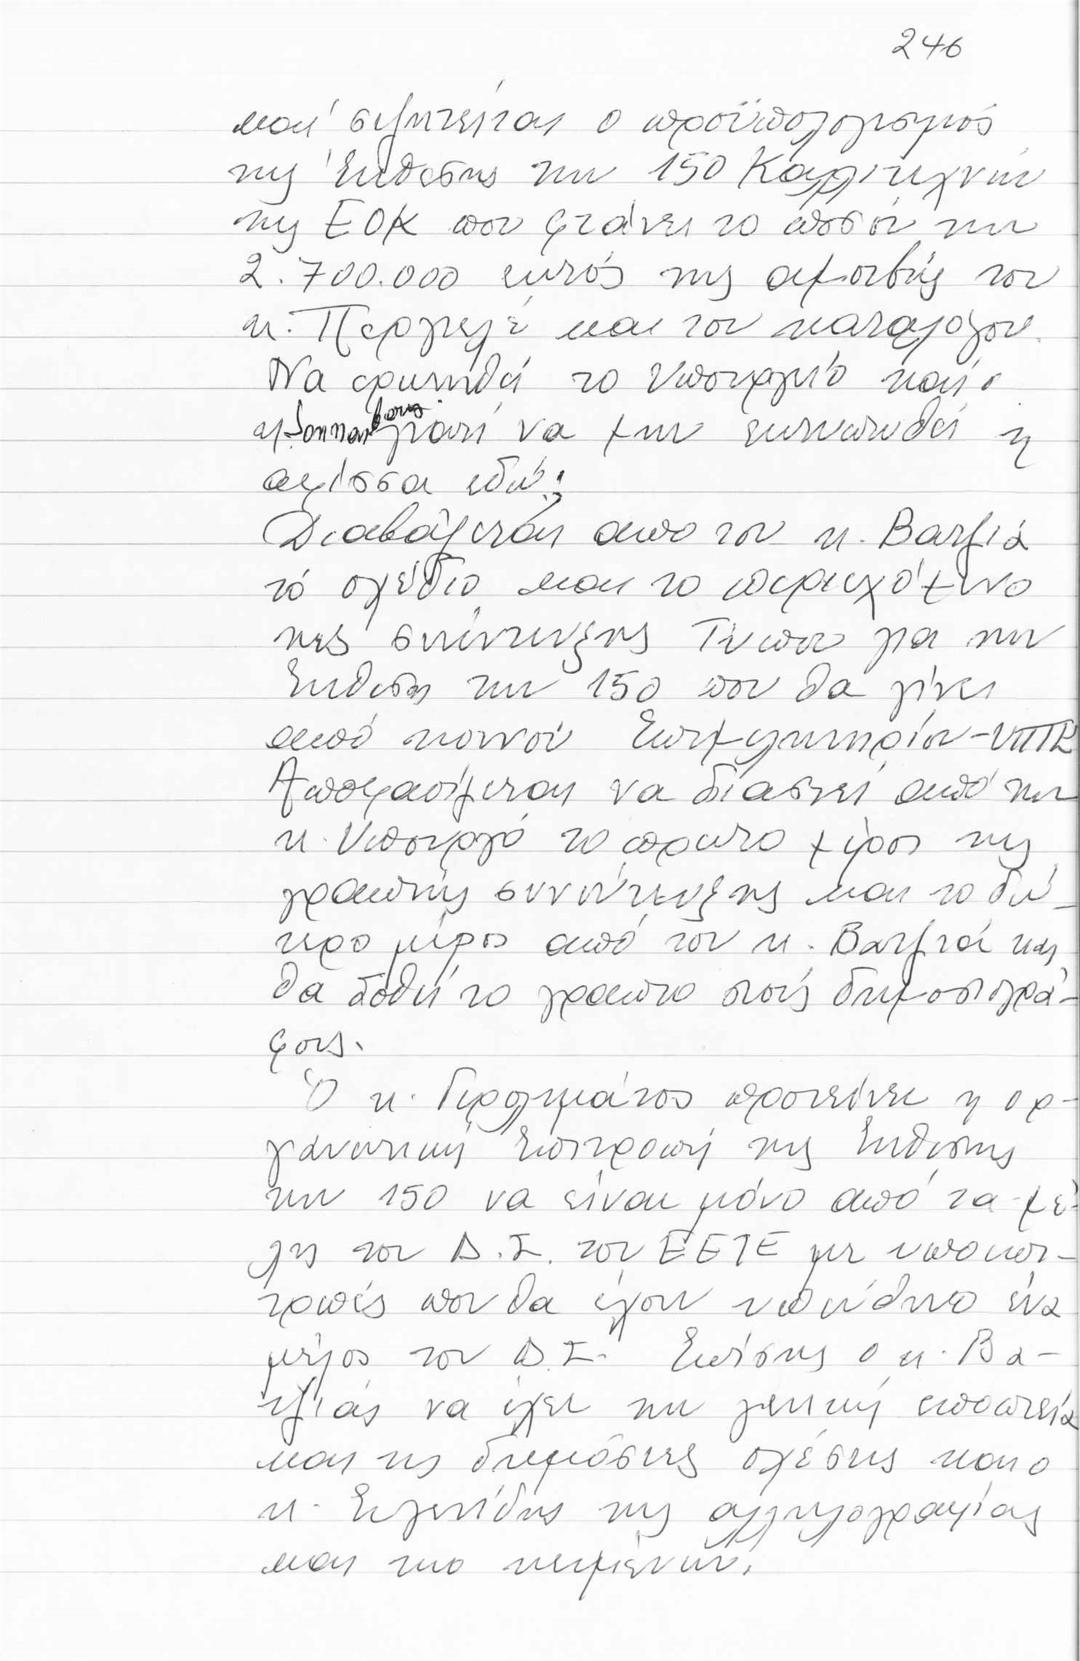 246
και συζητείται ο προϋπολογισμός
της Έκθεσης των 150 Καλλιτεχνών
της ΕΟΚ που φτάνει το ποσόν των
2.700.000 εκτός της αμοιβής του
κ. και του καταλόγου.
Να ερωτηθεί το Υπουργείο και ο
γιατί να μην εκτυπωθεί η
αφίσσα εδώ;
Διαβάζεται απο τον κ. Βατζιά
τό σχέδιο και το περιεχόμενο
της συνέντευξης Τύπου για την
Έκθεση των 150 που θα γίνει
από κοινού Επιμελητηρίου - ΥΠΠΕ
Αποφασίζεται να διαβαστεί από την
κ. Υπουργό το πρώτο μέρος της
γραπτής συνέντευξης και το δεύ-
τερο μέρος από τον κ. Βατζιά και
θα δοθεί το γραπτο στούς δημοσιογρά-
φους.
Ο κ. Γερολυμάτος προτείνει η ορ-
γανωτική Επιτροπή της Έκθεσης
των 150 να είναι μόνο από τα μέ-
λη του Δ.Σ. του ΕΕΤΕ με υποεπι-
τροπές που θα έχουν υπεύθυνο ένα
μέλος του Δ.Σ. Επίσης ο κ. Βα-
τζιάς να έχει την γενική εποπτεία
και τις δημόσιες σχέσεις και ο
κ. της αλληλογραφίας
και των κειμένων.